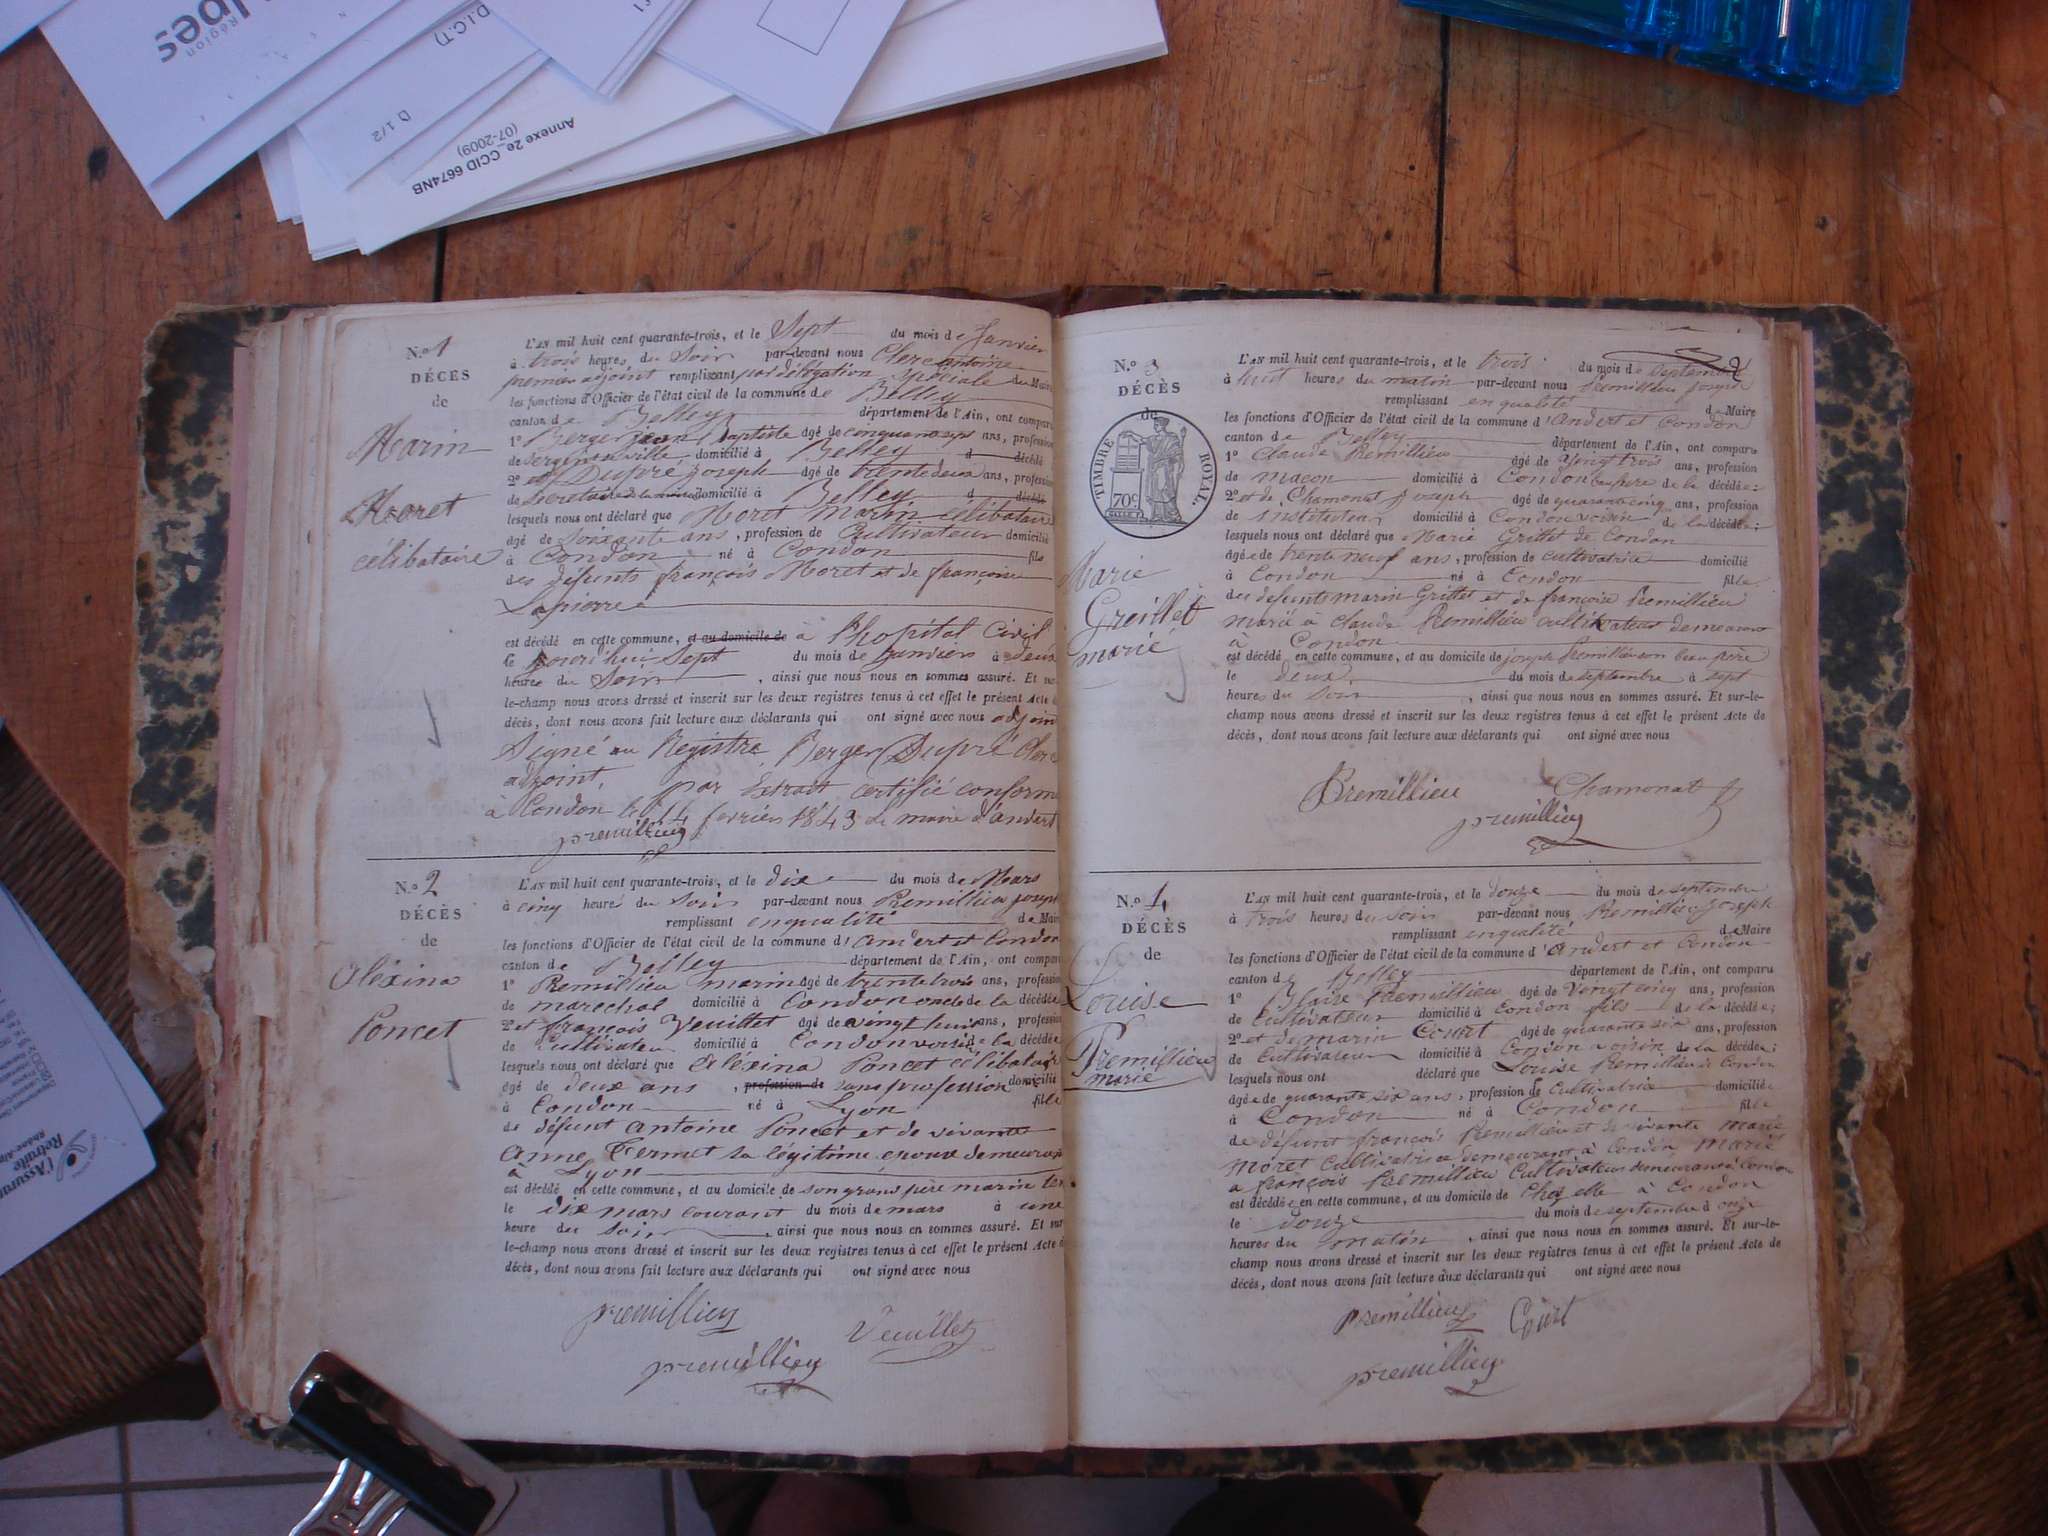 Région
D.I.C.T)
D 1/2
Annexe 2e_CCID 6674NB
(07-2009)
l'Assurance
Retraite
N.º 1
DÉCÈS
de
Marin
Moret
célibataire
L'AN mil huit cent quarante-trois, et le Sept du mois de Janvier
à trois heures du Soir par-devant nous Clerc antoine
premier adjoint remplissant par délégation spéciale de Maire
les fonctions d'Officier de l'état civil de la commune de Belley
canton de Belley département de l'Ain, ont comparu
1º Berger jean baptiste âgé de ans, profession
de Sergent de ville domicilié à Belley d décédé
2º et Dupré joseph âgé de trente deux ans, profession
de Secretaire de la mairie domicilié à Belley d décédé
lesquels nous ont déclaré que Moret Marin célibataire
âgé de soixante ans, profession de Cultivateur domicilié
à Condon né à Condon fils
des défunts françois Moret et de françoise
Lapierre
est décédé en cette commune, et au domicile de à l'hopital Civil
le jourd'hui Sept du mois de janvier à deux
heures du Soir, ainsi que nous nous en sommes assuré. Et sur
le-champ nous avons dressé et inscrit sur les deux registres tenus à cet effet le présent Acte de
décès, dont nous avons fait lecture aux déclarants qui ont signé avec nous adjoint
Signé au Registre Berger Dupré Clerc
adjoint, par Extrait certifié conforme
à Condon le 14 fevrier 1843 Le maire d'andert
premillieu
N.º 2
DÉCÈS
de
Aléxina
Poncet
L'AN mil huit cent quarante-trois, et le dix du mois de Mars
à cinq heures du Soir par-devant nous Premillieu joseph
remplissant en qualité de Maire
les fonctions d'Officier de l'état civil de la commune d'andert et Condon
canton de Belley département de l'Ain, ont comparu
1º Premillieu marin âgé de trente trois ans, profession
de marechal domicilié à Condon oncle de la décédée
2º et françois Veuillet âgé de vingt huit ans, profession
de Cultivateur domicilié à Condon voisin de la décédée
lesquels nous ont déclaré que Aléxina Poncet célibataire
âgé de deux ans, profession de sans profession domicilié
à Condon né à Lyon fille
de défunt antoine Poncet et de vivante
anne Termet sa légitime epouse demeurant
à Lyon
est décédé en cette commune, et au domicile de son grand père marin
le dix mars courant du mois de mars à une
heure du soir, ainsi que nous nous en sommes assuré. Et sur
le-champ nous avons dressé et inscrit sur les deux registres tenus à cet effet le présent Acte de
décès, dont nous avons fait lecture aux déclarants qui ont signé avec nous
premillieu Veuillet
premillieu
N.º 3
DÉCÈS
de
TIMBRE ROYAL.
70c
Marie
Greillet
marié
L'AN mil huit cent quarante-trois, et le trois du mois de septembre
à huit heures du matin par-devant nous Premillieu joseph
remplissant en qualité de Maire
les fonctions d'Officier de l'état civil de la commune d'andert et Condon
canton de Belley département de l'Ain, ont comparu
1º Claude Premillieu âgé de vingt trois ans, profession
de macon domicilié à Condon beau frere de la décédée;
2º et de Chamonat joseph âgé de quarante cinq ans, profession
de instituteur domicilié à Condon voisin de la décédée;
lesquels nous ont déclaré que Marie Grillet de Condon
âgée de trente neuf ans, profession de cultivatrice domicilié
à Condon né à Condon fille
des défunts marin Grillet et de françoise Premillieu
marié à claude Premillieu cultivateur demeurant
à Condon
est décédé en cette commune, et au domicile de joseph Premillieu son beau père
le deux du mois de septembre à sept
heures du soir, ainsi que nous nous en sommes assuré. Et sur-le-
champ nous avons dressé et inscrit sur les deux registres tenus à cet effet le présent Acte de
décès, dont nous avons fait lecture aux déclarants qui ont signé avec nous
Premillieu Chamonat J
premillieu
N.º 4
DÉCÈS
de
Louise
Premillieu
marié
L'AN mil huit cent quarante-trois, et le douze du mois de septembre
à trois heures du soir par-devant nous Premillieu joseph
remplissant en qualité de Maire
les fonctions d'Officier de l'état civil de la commune d'andert et Condon
canton de Belley département de l'Ain, ont comparu
1º Blaise Premillieu âgé de vingt cinq ans, profession
de Cultivateur domicilié à Condon fils de la décédée;
2º et de marin Court âgé de quarante six ans, profession
de Cultivateur domicilié à Condon voisin de la décédée;
lesquels nous ont déclaré que Louise Premillieu de Condon
âgée de quarante six ans, profession de Cultivatrice domiciliée
à Condon né à Condon fille
de défunt françois Premillieu et de vivante marie
moret Cultivatrice demeurant à Condon Marié
a françois Premillieu Cultivateur demeurant à Condon
est décédée en cette commune, et au domicile de chez elle à Condon
le douze du mois de septembre à onze
heures du matin, ainsi que nous nous en sommes assuré. Et sur-le-
champ nous avons dressé et inscrit sur les deux registres tenus à cet effet le présent Acte de
décès, dont nous avons fait lecture aux déclarants qui ont signé avec nous
premillieu Court
premillieu